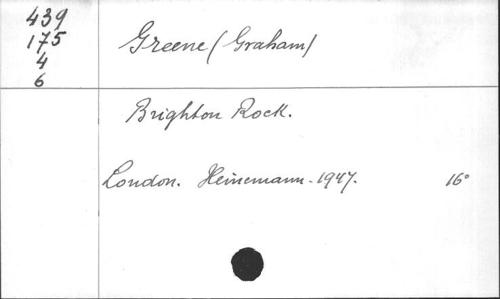 439
175
4
6
Greene (Graham)
Brighton Rock.
London. Heinemann - 1947. 16°